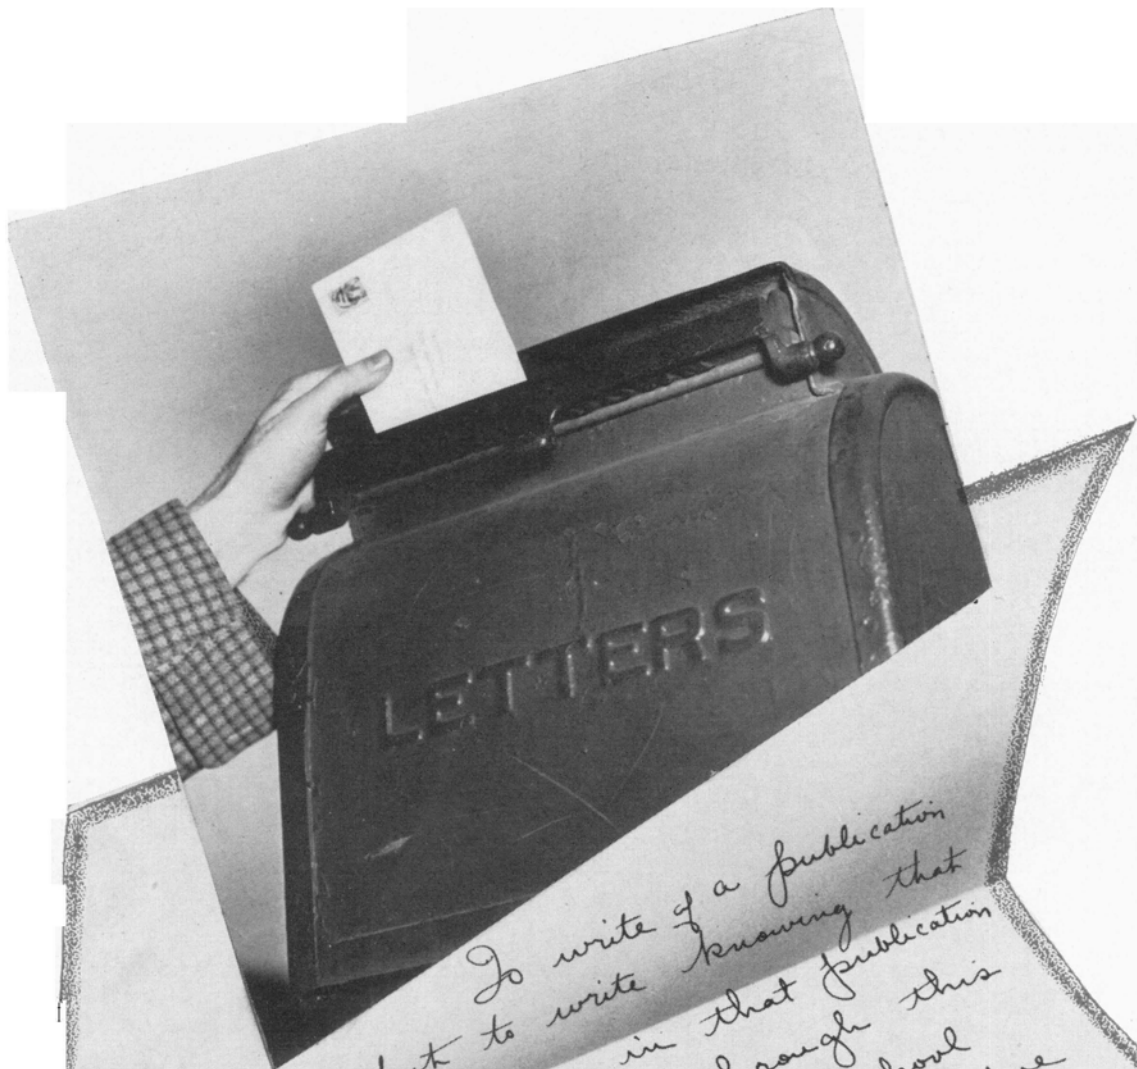 LETTERS
To write of a publication
but to write knowing that
in that publication
through this